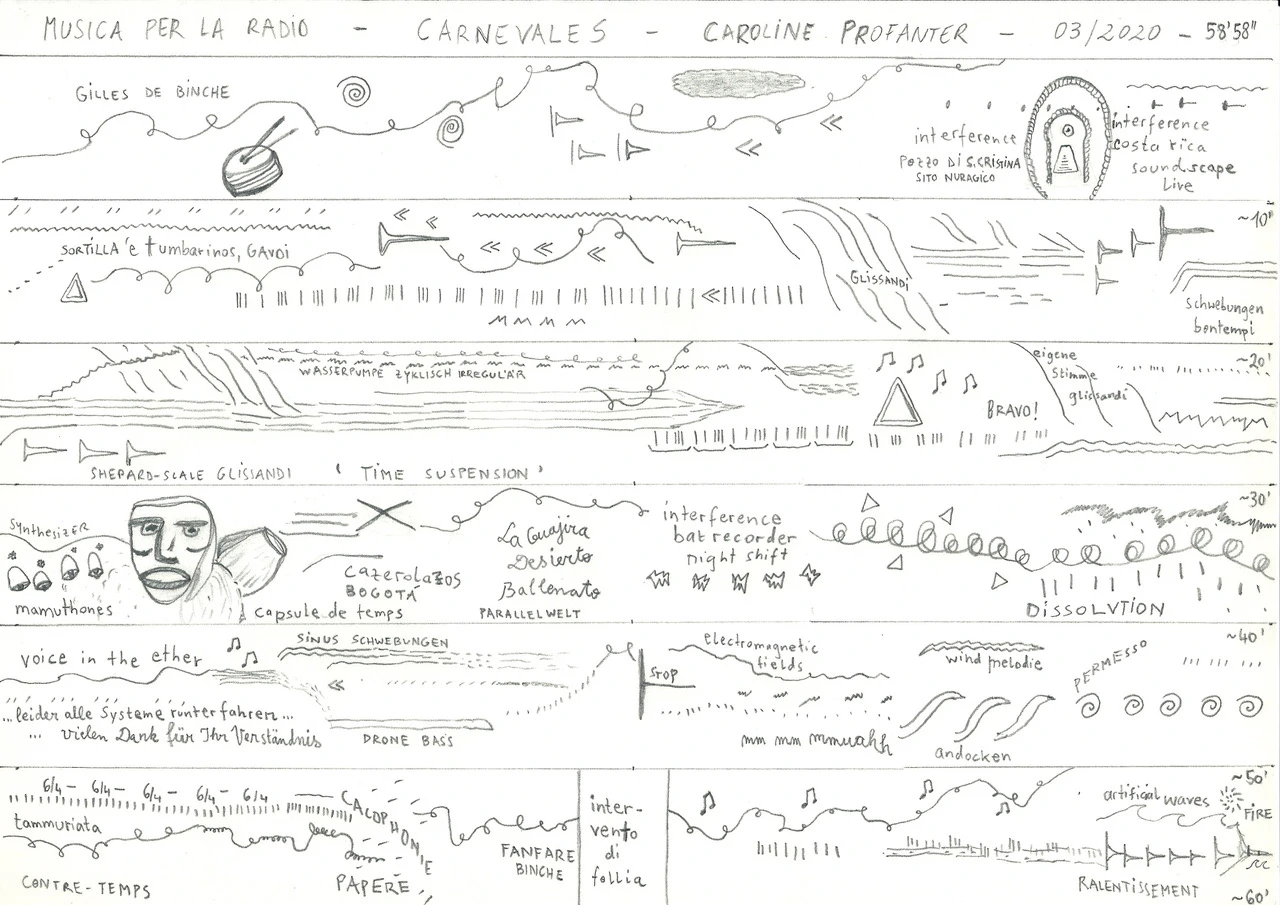 MUSICA PER LA RADIO - CARNEVALES - CAROLINE PROFANTER - 03/2020 - 58'58"
GILLES DE BINCHE
interference
POZZO DI S.CRISTINA
SITO NURAGICO
interference
costa rica
soundscape
live
~10"
SORTILLA 'e tumbarinos, GAVOI
GLISSANDI
Schwebungen
bontempi
~20'
WASSERPUMPE ZYKLISCH IRREGULÄR
eigene
Stimme
glissandi
BRAVO!
SHEPARD-SCALE GLISSANDI ' TIME SUSPENSION '
~30'
Synthesizer
mamuthones
Cazerolazos
BOGOTÁ
capsule de temps
La Guajira
Desierto
Ballenato
PARALLELWELT
interference
bat recorder
night shift
DISSOLUTION
~40'
voice in the ether
SINUS SCHWEBUNGEN
...leider alle Systeme runterfahren...
... vielen Dank für Ihr Verständnis
DRONE BASS
STOP
Electromagnetic
fields
mm mm mmuahh
wind melodie
andocken
PERMESSO
~50'
6/4 - 6/4 - 6/4 - 6/4 - 6/4
tammuriata
CONTRE-TEMPS
CACOPHONIE
PAPERE
FANFARE
BINCHE
inter-
vento
di
follia
artificial waves
FIRE
RALENTISSEMENT
~60'